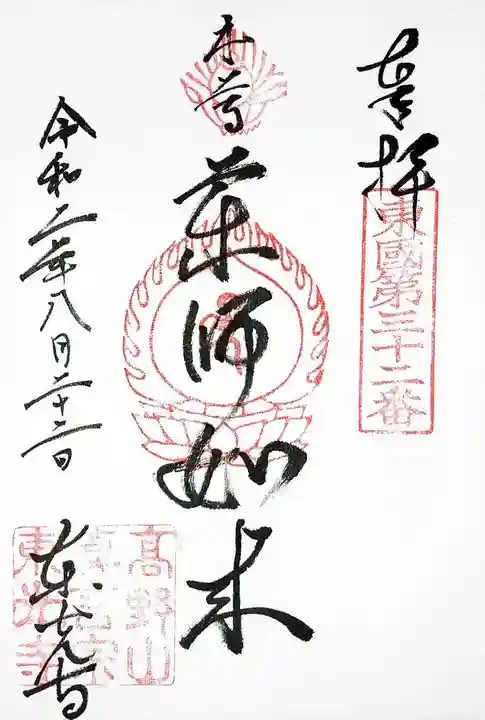 奉拝
東國第三十二番
本尊
薬師如来
令和二年八月二十二日
高野山
東光寺
東光寺